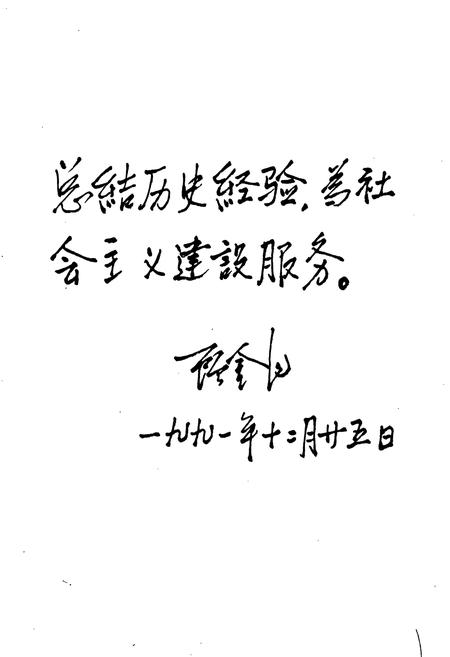 总結历史経验，為社
会主义建設服务。
金
一九九一年十二月廿五日